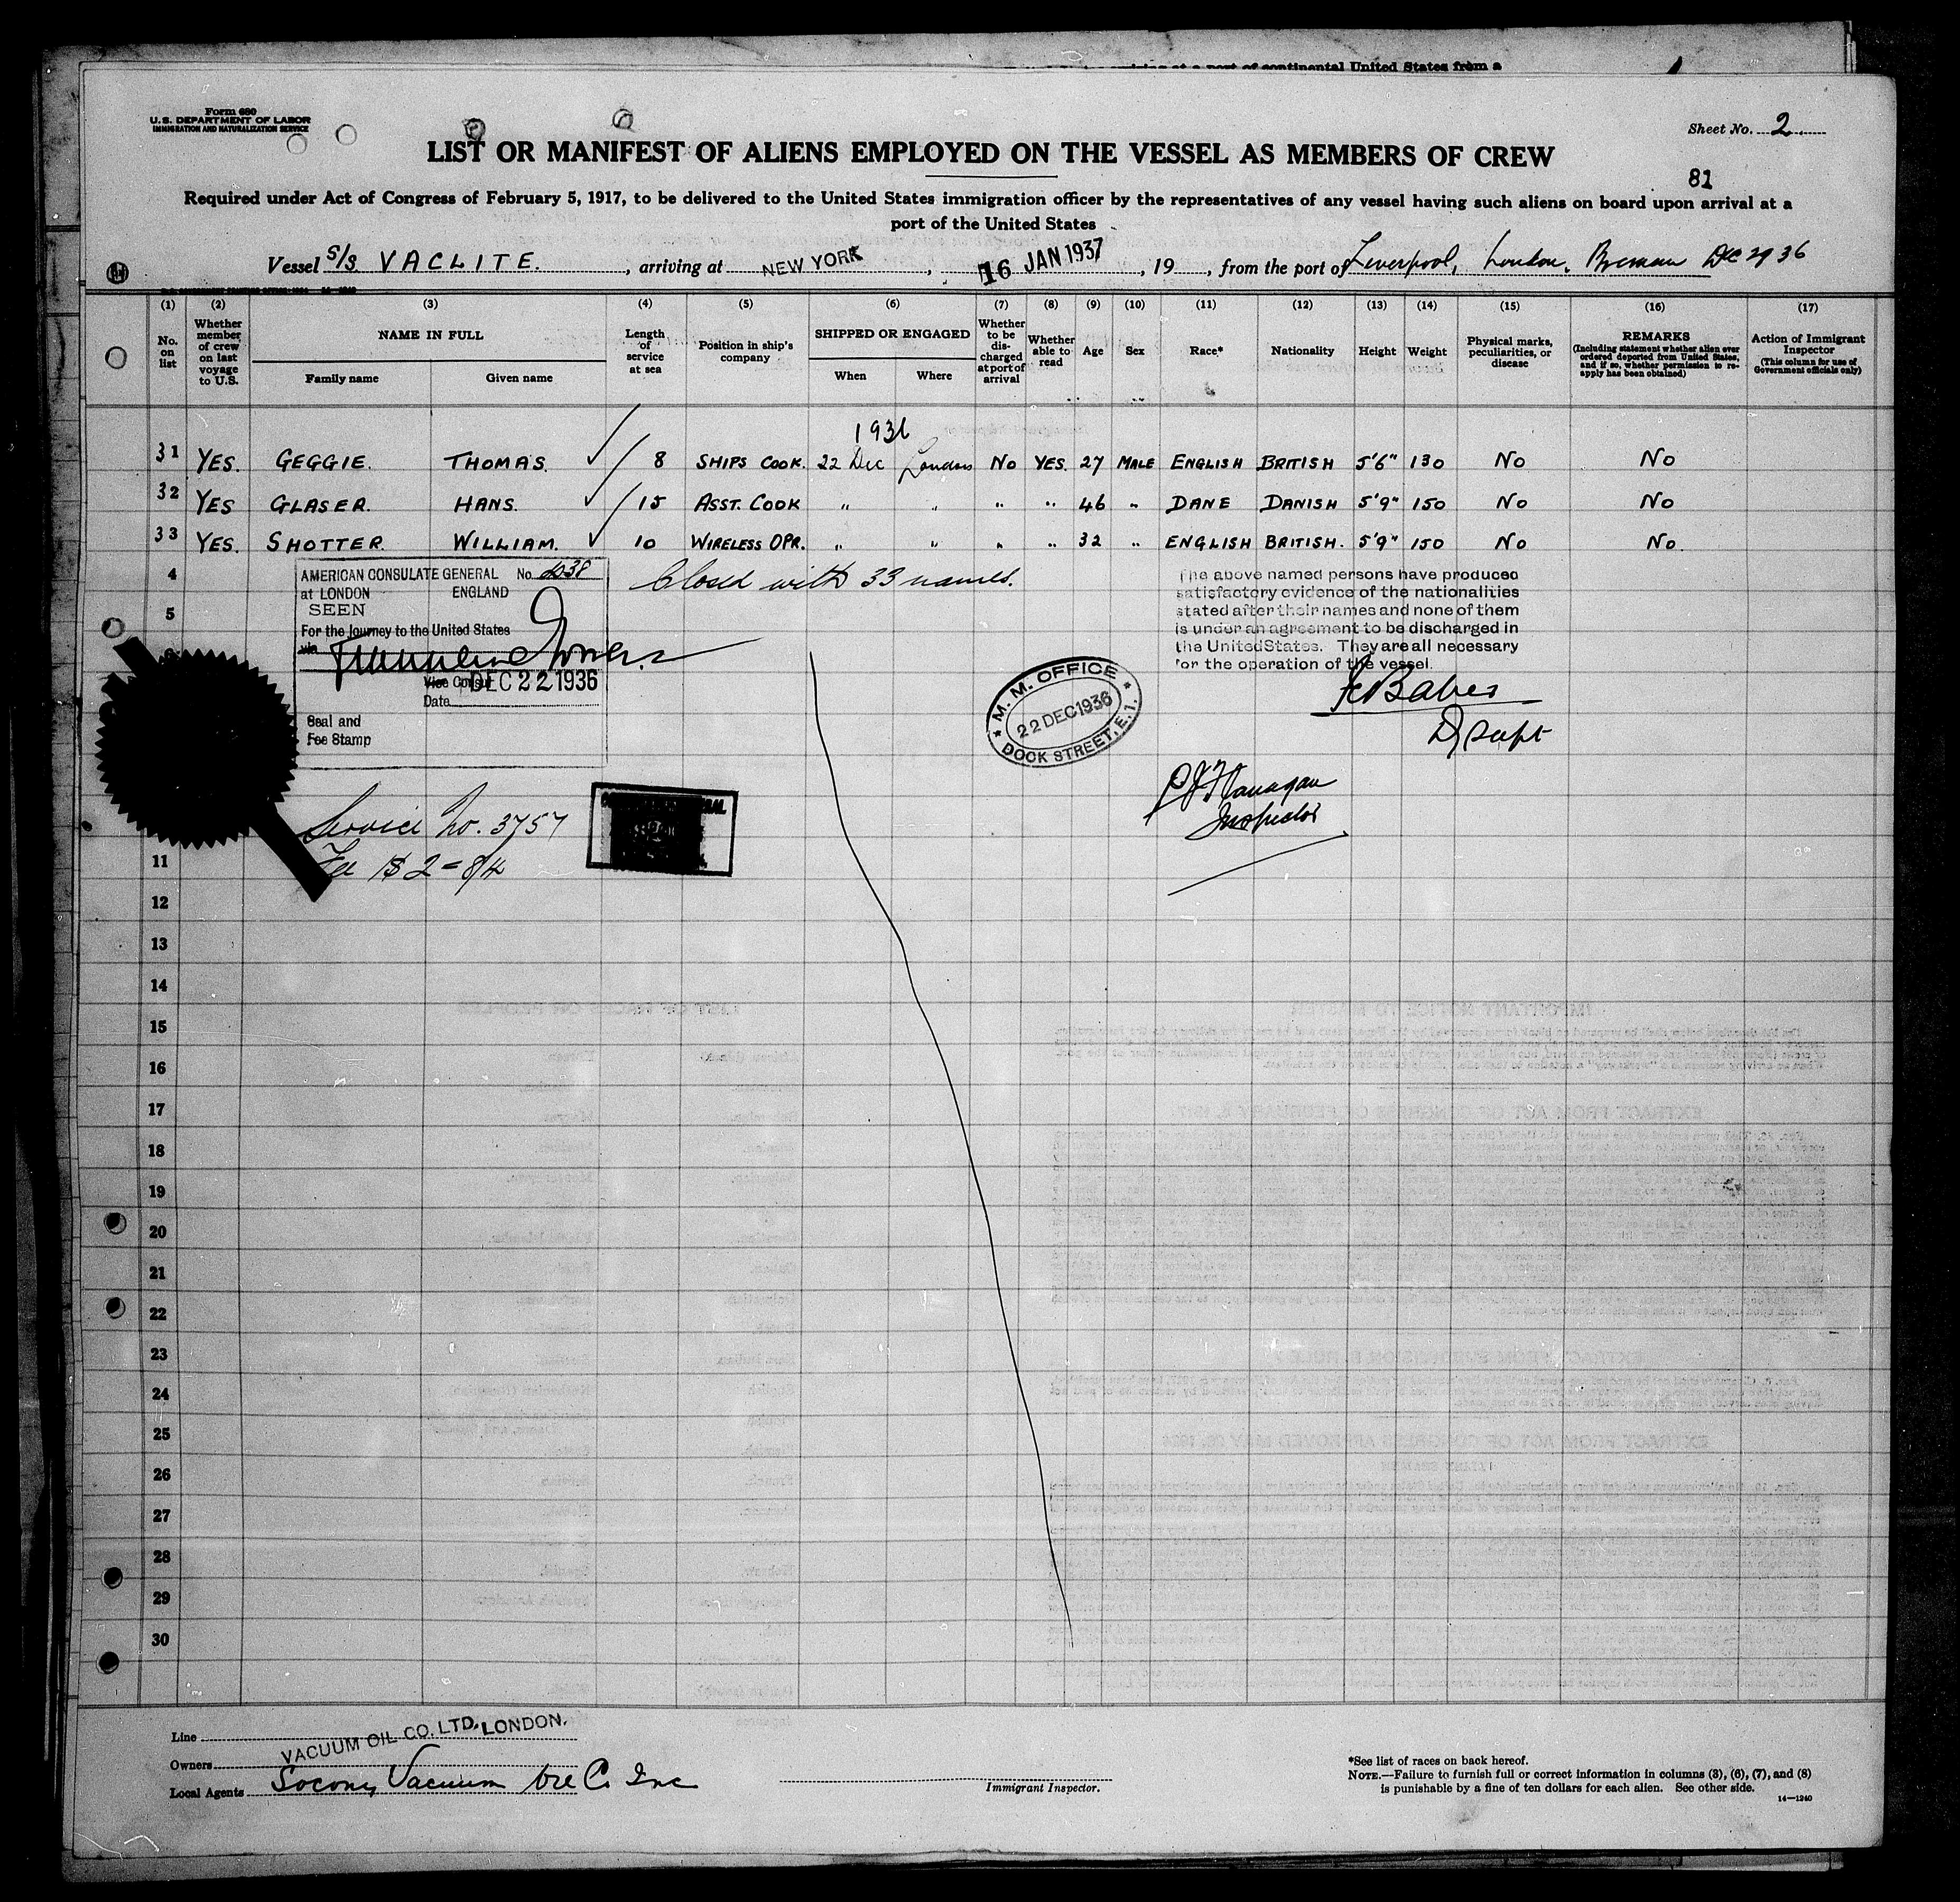 arriving at a port of continental United States from a
Form 680
U.S. DEPARTMENT OF LABOR
IMMIGRATION AND NATURALIZATION SERVICE
Sheet No. 2
LIST OR MANIFEST OF ALIENS EMPLOYED ON THE VESSEL AS MEMBERS OF CREW
81
Required under Act of Congress of February 5, 1917, to be delivered to the United States immigration officer by the representatives of any vessel having such aliens on board upon arrival at a
port of the United States
Vessel S/S VACLITE. , arriving at NEW YORK , 16 JAN 1937 , 19 , from the port of Liverpool, London, Bremen Dec 29 36
(1) (2) (3) (4) (5) (6) (7) (8) (9) (10) (11) (12) (13) (14) (15) (16) (17)
No. on list
Whether member of crew on last voyage to U.S.
NAME IN FULL
Family name Given name
Length of service at sea
Position in ship's company
SHIPPED OR ENGAGED
When Where
Whether to be discharged at port of arrival
Whether able to read
Age
Sex
Race*
Nationality
Height
Weight
Physical marks, peculiarities, or disease
REMARKS
(Including statement whether alien ever ordered deported from United States, and if so, whether permission to reapply has been obtained)
Action of Immigrant Inspector
(This column for use of Government officials only)
1936
31 YES. GEGGIE. THOMAS. 8 SHIPS COOK. 22 Dec London No YES. 27 MALE ENGLISH BRITISH 5'6" 130 No No
32 YES GLASER. HANS. 15 ASST. COOK " " " " 46 " DANE DANISH 5'9" 150 No No
33 YES. SHOTTER. WILLIAM. 10 WIRELESS OPR. " " " " 32 " ENGLISH BRITISH. 5'9" 150 No No.
4 Closed with 33 names.
AMERICAN CONSULATE GENERAL No.
at LONDON ENGLAND
SEEN
For the Journey to the United States
via
Vice Consul
DEC 22 1936
Date
Seal and
Fee Stamp
The above named persons have produced
satisfactory evidence of the nationalities
stated after their names and none of them
is under an agreement to be discharged in
the United States. They are all necessary
for the operation of the vessel.
D/Supt
M. M. OFFICE
22 DEC 1936
DOCK STREET, E.1.
Inspector
Service No. 3757
Fee $2 = 8/4
5
11
12
13
14
15
16
17
18
19
20
21
22
23
24
25
26
27
28
29
30
Line
VACUUM OIL CO. LTD. LONDON.
Owners
Local Agents Socony Vacuum Oil Co Inc
Immigrant Inspector.
*See list of races on back hereof.
NOTE.—Failure to furnish full or correct information in columns (3), (6), (7), and (8)
is punishable by a fine of ten dollars for each alien. See other side.
14—1240